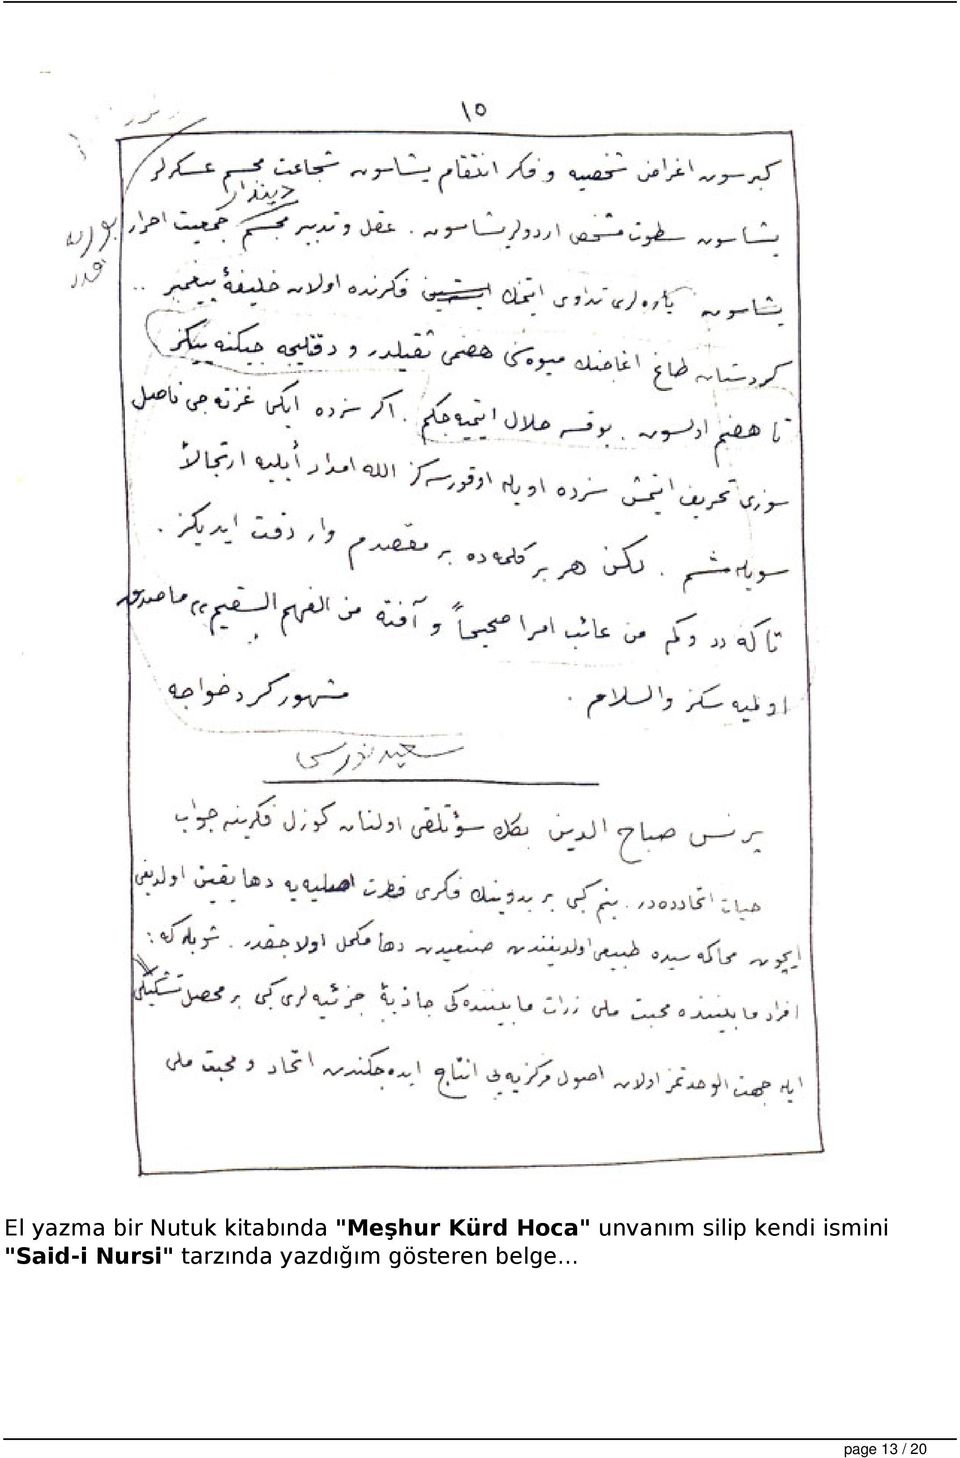 ١٥
كبرسون اغراض شخصيه و فكر انتقام يشاسون شجاعت مجسم عسكرلر
ديندار
يشاسون سطوت مشخص اردولر يشاسون . عقل و تدبير مجسم جمعيت احرار
يشاسون ياره لرى تداوى ايتمك فكرنده اولان خليفهٔ پيغمبر ..
كردستان طاغ اغاجنك ميوه سى هضمى ثقيلدر و دقتليجه
تا هضم اولسون . حلال ايتميه جكم . اكر سزده ايكى غزته جى ناصل
سوزى تحريف ايتمش سزده اويله اوقورسه كز الله امداد أيليه ارتجالاً
سويله مشم . لكن هر بر كلمه ده بر مقصدم وار دقت ايديكز .
تا كه «وكم من عائب امرا صحيحاً و آفته من الفهم السقيم» ماصدق
اولميه سكز والسلام . مشهور كرد خواجه
سعيد نورسى
پرنس صباح الدين بكك سؤ تلقى اولنان كوزل فكرينه جواب
حيات اتحاددهدر . بنم كبى بر بدوينك فكرى فطرت اصليه يه دها يقين اولديغى
ايچون محاكمه سيده طبيعى اولديغندن صنعيدن دها مكمل اولاجقدر . شويله كه :
افراد مابيننده محبت ملى ذرات مابيننده كى جاذبهٔ جزئيه لرى كبى بر محصل تشكيلى
ايله جهت الوحدتمز اولان اصول مركزيه يى انتاج ايده جكندن اتحاد و محبت ملى
El yazma bir Nutuk kitabında "Meşhur Kürd Hoca" unvanım silip kendi ismini
"Said-i Nursi" tarzında yazdığım gösteren belge...
page 13 / 20